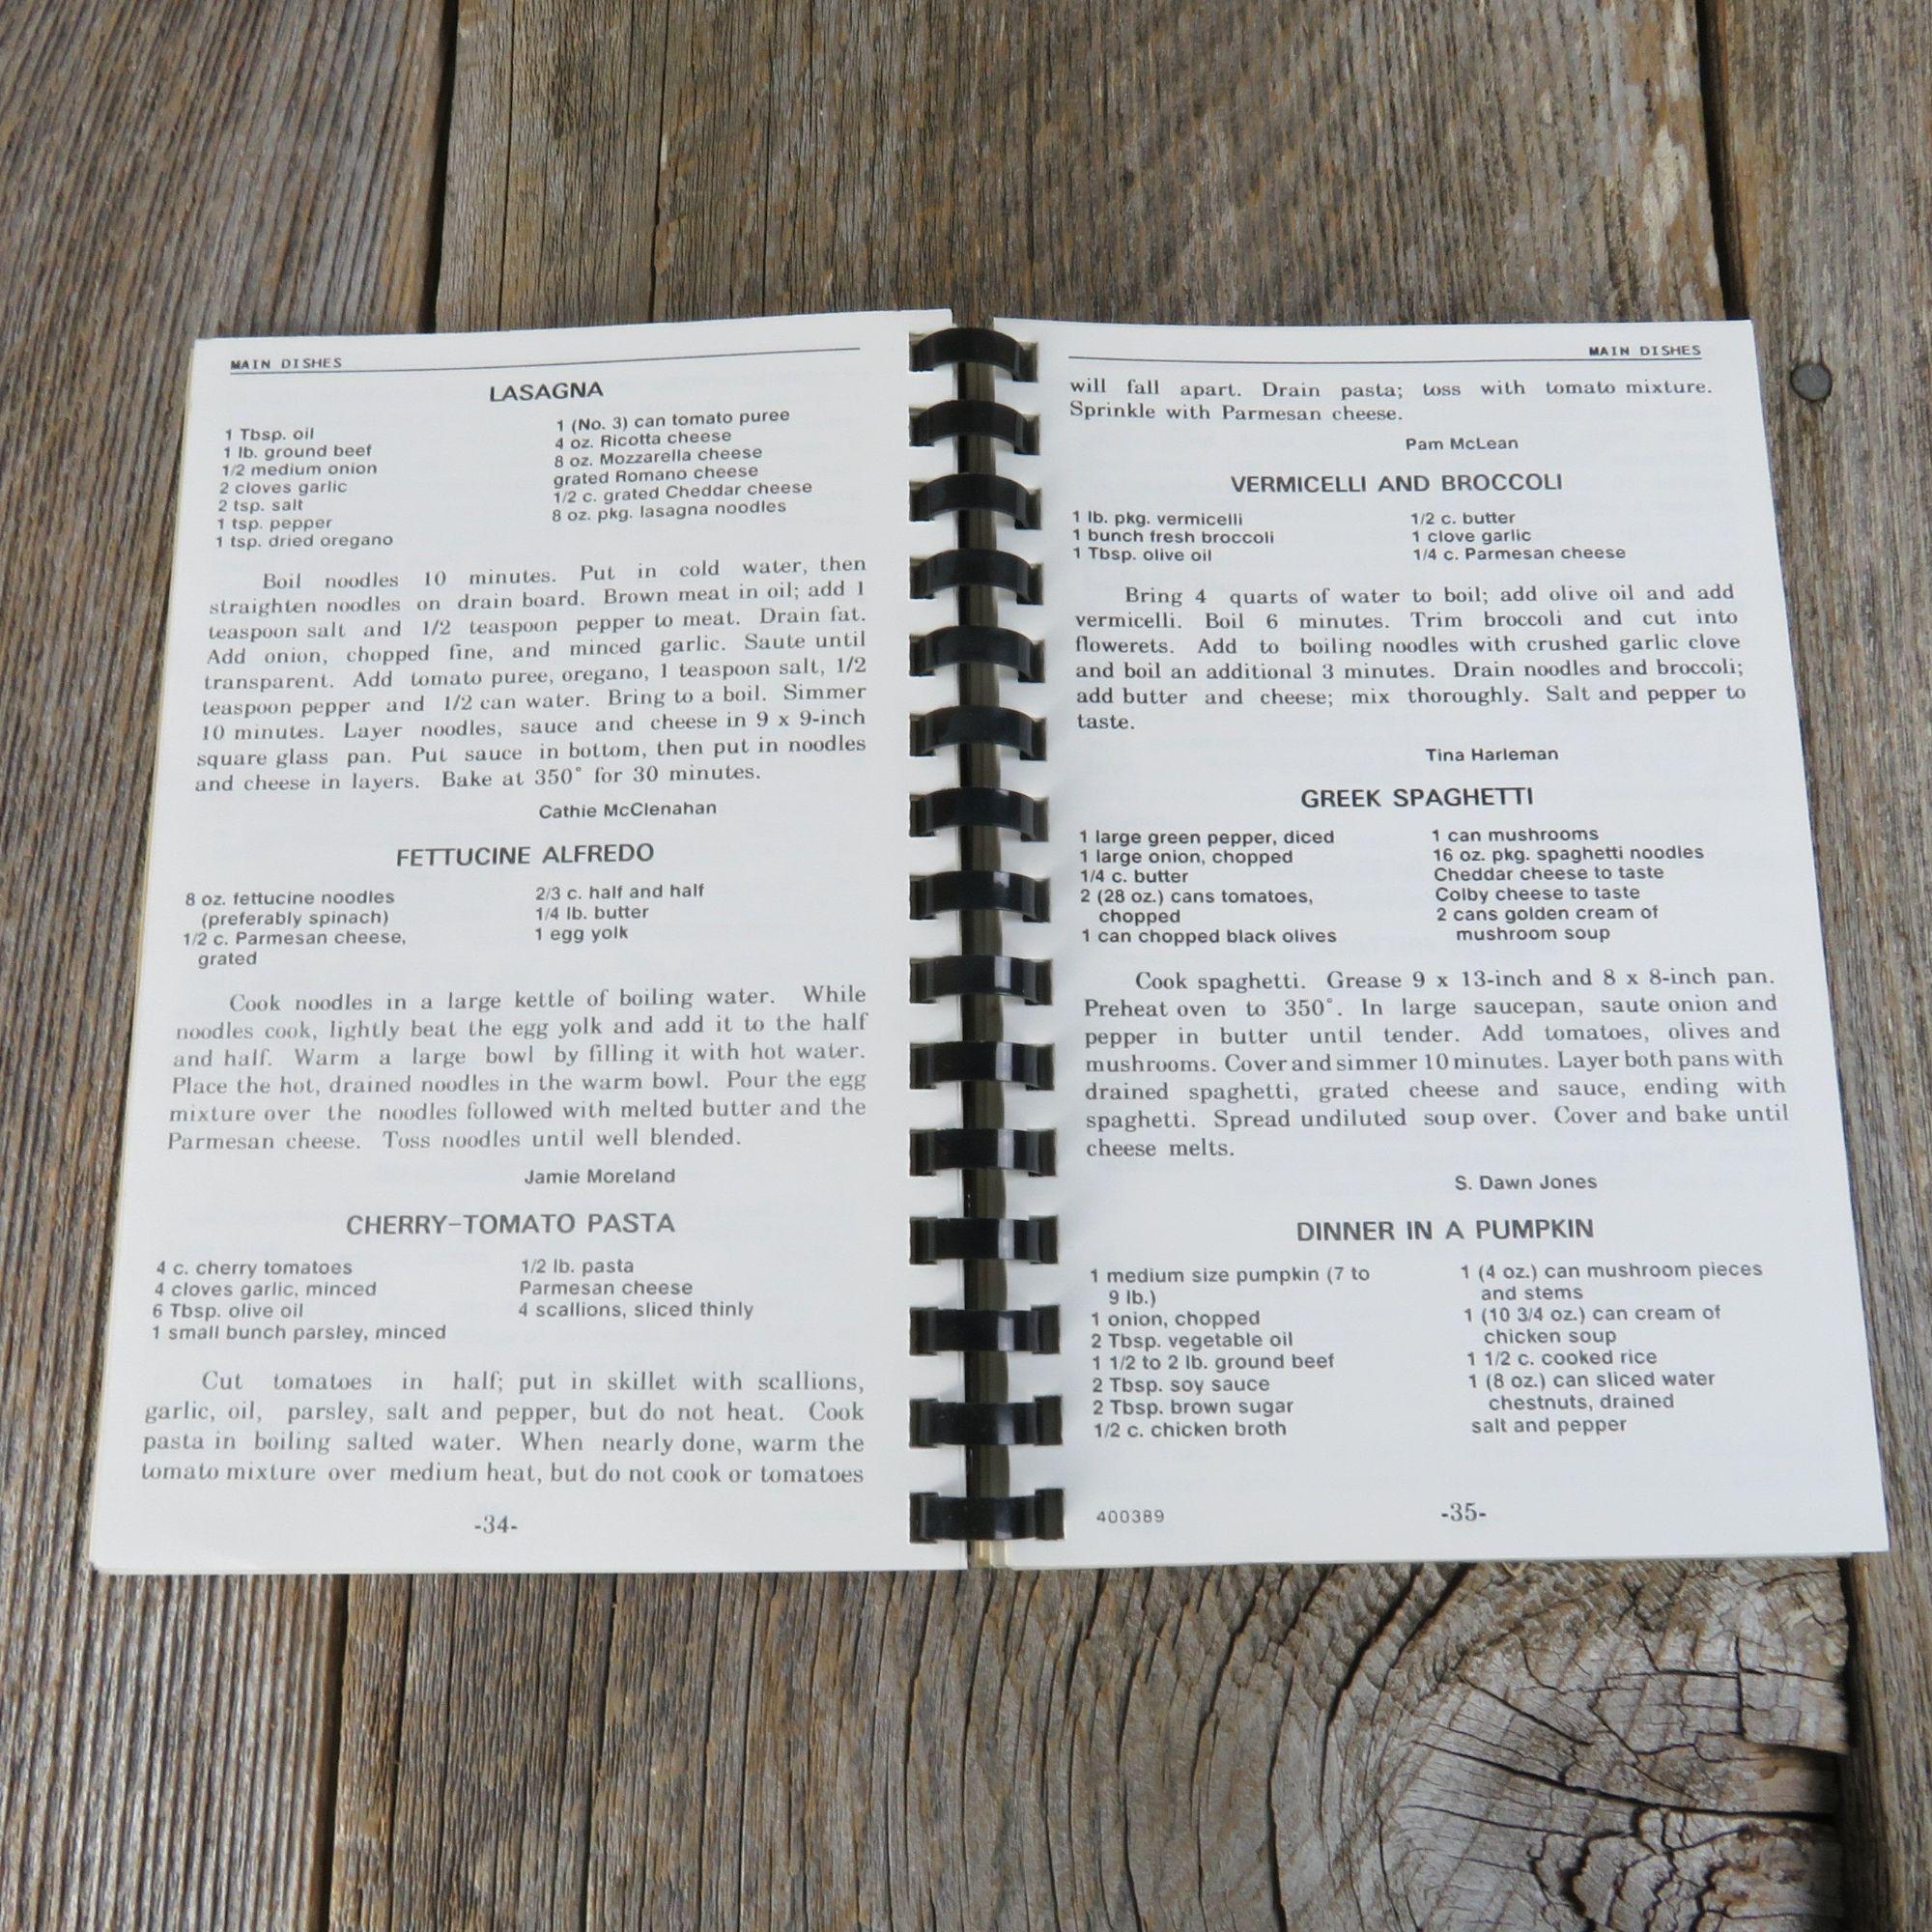 MAIN DISHES
LASAGNA
1 Tbsp. oil
1 lb. ground beef
1/2 medium onion
2 cloves garlic
2 tsp. salt
1 tsp. pepper
1 tsp. dried oregano
1 (No. 3) can tomato puree
4 oz. Ricotta cheese
8 oz. Mozzarella cheese
grated Romano cheese
1/2 c. grated Cheddar cheese
8 oz. pkg. lasagna noodles
Boil noodles 10 minutes. Put in cold water, then
straighten noodles on drain board. Brown meat in oil; add 1
teaspoon salt and 1/2 teaspoon pepper to meat. Drain fat.
Add onion, chopped fine, and minced garlic. Saute until
transparent. Add tomato puree, oregano, 1 teaspoon salt, 1/2
teaspoon pepper and 1/2 can water. Bring to a boil. Simmer
10 minutes. Layer noodles, sauce and cheese in 9 x 9-inch
square glass pan. Put sauce in bottom, then put in noodles
and cheese in layers. Bake at 350° for 30 minutes.
Cathie McClenahan
FETTUCINE ALFREDO
8 oz. fettucine noodles
(preferably spinach)
1/2 c. Parmesan cheese,
grated
2/3 c. half and half
1/4 lb. butter
1 egg yolk
Cook noodles in a large kettle of boiling water. While
noodles cook, lightly beat the egg yolk and add it to the half
and half. Warm a large bowl by filling it with hot water.
Place the hot, drained noodles in the warm bowl. Pour the egg
mixture over the noodles followed with melted butter and the
Parmesan cheese. Toss noodles until well blended.
Jamie Moreland
CHERRY-TOMATO PASTA
4 c. cherry tomatoes
4 cloves garlic, minced
6 Tbsp. olive oil
1 small bunch parsley, minced
1/2 lb. pasta
Parmesan cheese
4 scallions, sliced thinly
Cut tomatoes in half; put in skillet with scallions,
garlic, oil, parsley, salt and pepper, but do not heat. Cook
pasta in boiling salted water. When nearly done, warm the
tomato mixture over medium heat, but do not cook or tomatoes
-34-
MAIN DISHES
will fall apart. Drain pasta; toss with tomato mixture.
Sprinkle with Parmesan cheese.
Pam McLean
VERMICELLI AND BROCCOLI
1 lb. pkg. vermicelli
1 bunch fresh broccoli
1 Tbsp. olive oil
1/2 c. butter
1 clove garlic
1/4 c. Parmesan cheese
Bring 4 quarts of water to boil; add olive oil and add
vermicelli. Boil 6 minutes. Trim broccoli and cut into
flowerets. Add to boiling noodles with crushed garlic clove
and boil an additional 3 minutes. Drain noodles and broccoli;
add butter and cheese; mix thoroughly. Salt and pepper to
taste.
Tina Harleman
GREEK SPAGHETTI
1 large green pepper, diced
1 large onion, chopped
1/4 c. butter
2 (28 oz.) cans tomatoes,
chopped
1 can chopped black olives
1 can mushrooms
16 oz. pkg. spaghetti noodles
Cheddar cheese to taste
Colby cheese to taste
2 cans golden cream of
mushroom soup
Cook spaghetti. Grease 9 x 13-inch and 8 x 8-inch pan.
Preheat oven to 350°. In large saucepan, saute onion and
pepper in butter until tender. Add tomatoes, olives and
mushrooms. Cover and simmer 10 minutes. Layer both pans with
drained spaghetti, grated cheese and sauce, ending with
spaghetti. Spread undiluted soup over. Cover and bake until
cheese melts.
S. Dawn Jones
DINNER IN A PUMPKIN
1 medium size pumpkin (7 to
9 lb.)
1 onion, chopped
2 Tbsp. vegetable oil
1 1/2 to 2 lb. ground beef
2 Tbsp. soy sauce
2 Tbsp. brown sugar
1/2 c. chicken broth
1 (4 oz.) can mushroom pieces
and stems
1 (10 3/4 oz.) can cream of
chicken soup
1 1/2 c. cooked rice
1 (8 oz.) can sliced water
chestnuts, drained
salt and pepper
400389
-35-